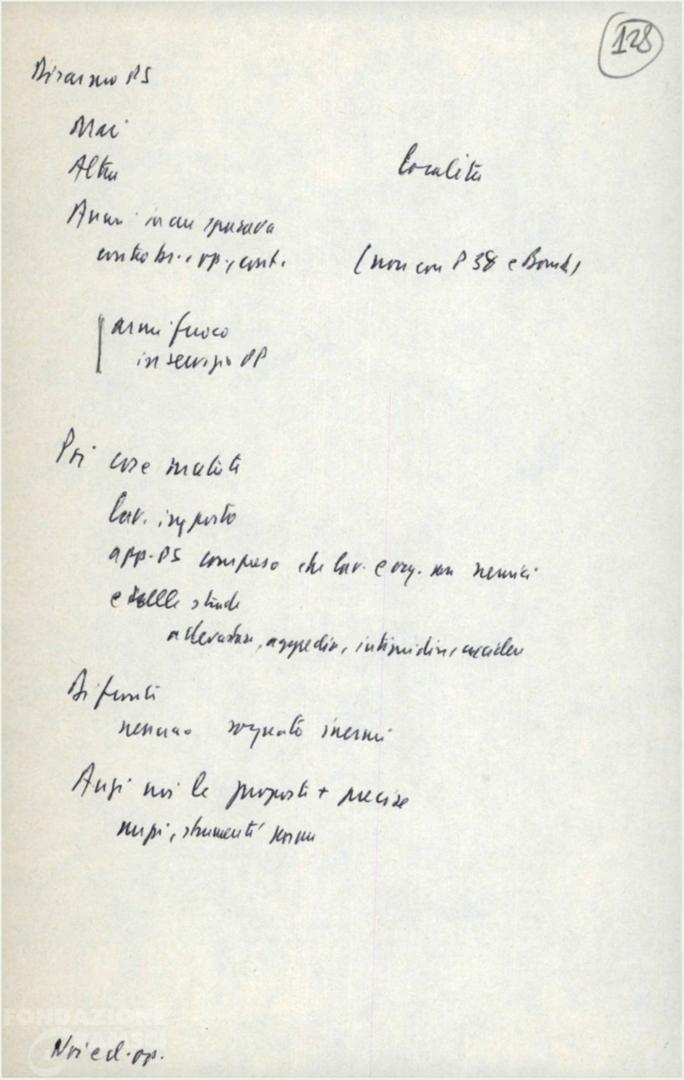 128
Disarmo PS
Mai
Altra
Località
Anni in cui sparava
contro br. , op., cont.
(non con P 38 e Bomb)
armi fuoco
in servizio OP
Poi cose mutate
lav. imposto
app. PS compreso che lav. e org. non nemici
e stelle strade
a devastare, aggredire, intimidire, uccidere
Di fronte
nessuno sognato inermi
Anzi noi le proposte + precise
mezzi, strumenti norme
FONDAZIONE
Noi ed. op.